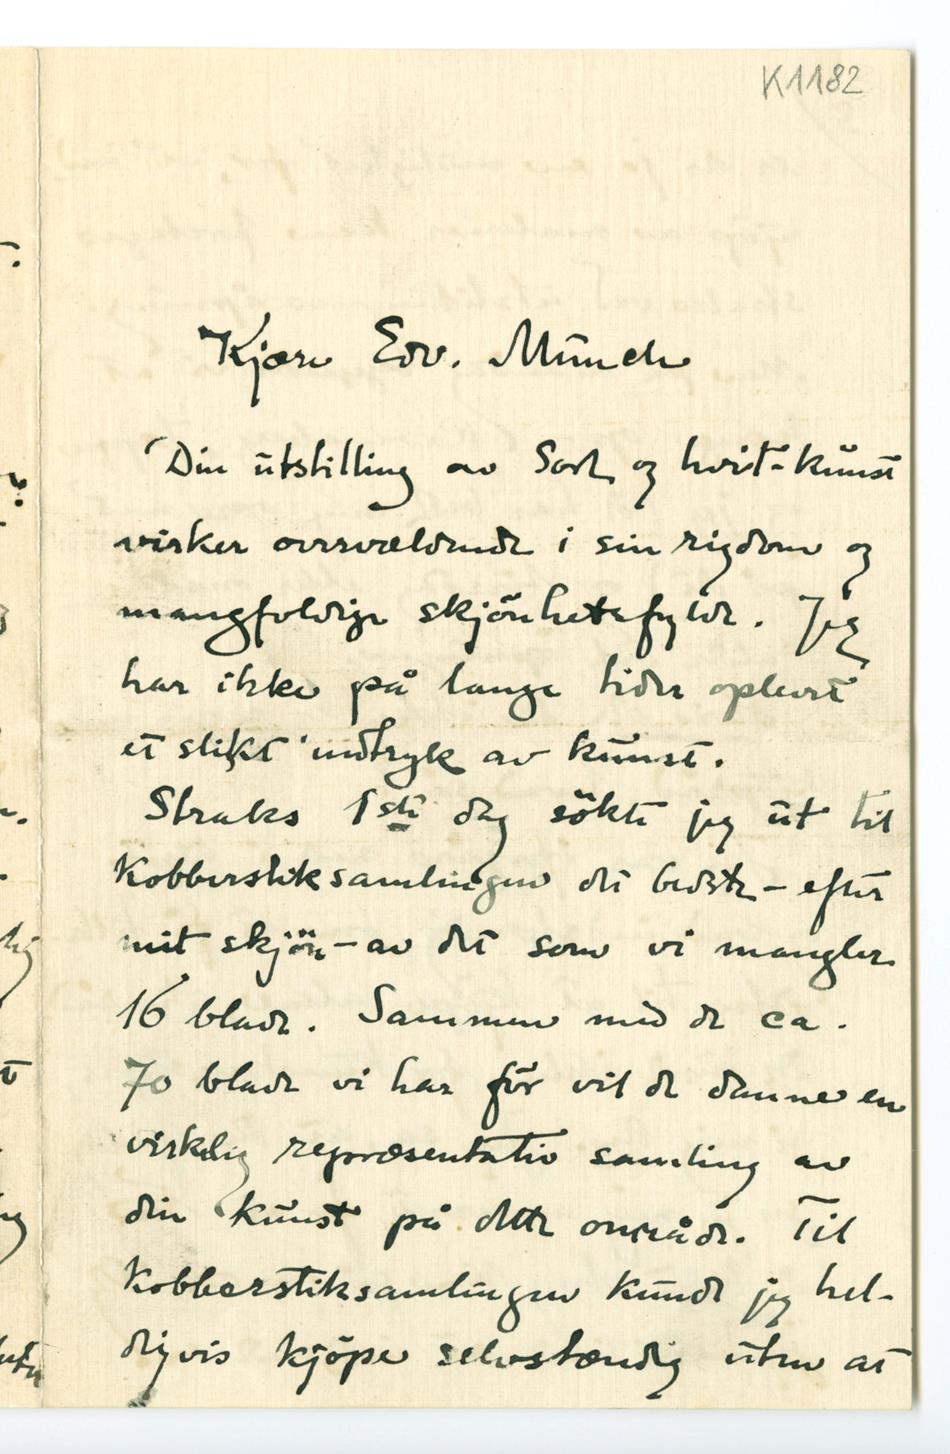 K1182
Kjære Edv. Munch
Din utstilling av Sort og hvit-kunst
virker overvældende i sin rigdom og
mangfoldige skjönhetsfylde. Jeg
har ikke på lange tider oplevet
et slikt indtryk av kunst.
Straks 1ste dag sökte jeg ut til
Kobberstiksamlingen det bedste – efter
mit skjön – av det som vi mangler
16 blade. Sammen med de ca.
70 blade vi har för vil de danne en
virkelig repræsentativ samling av
din kunst på dette område. Til
Kobberstiksamlingen kunde jeg hel-
digvis kjöpe selvstændig uten at